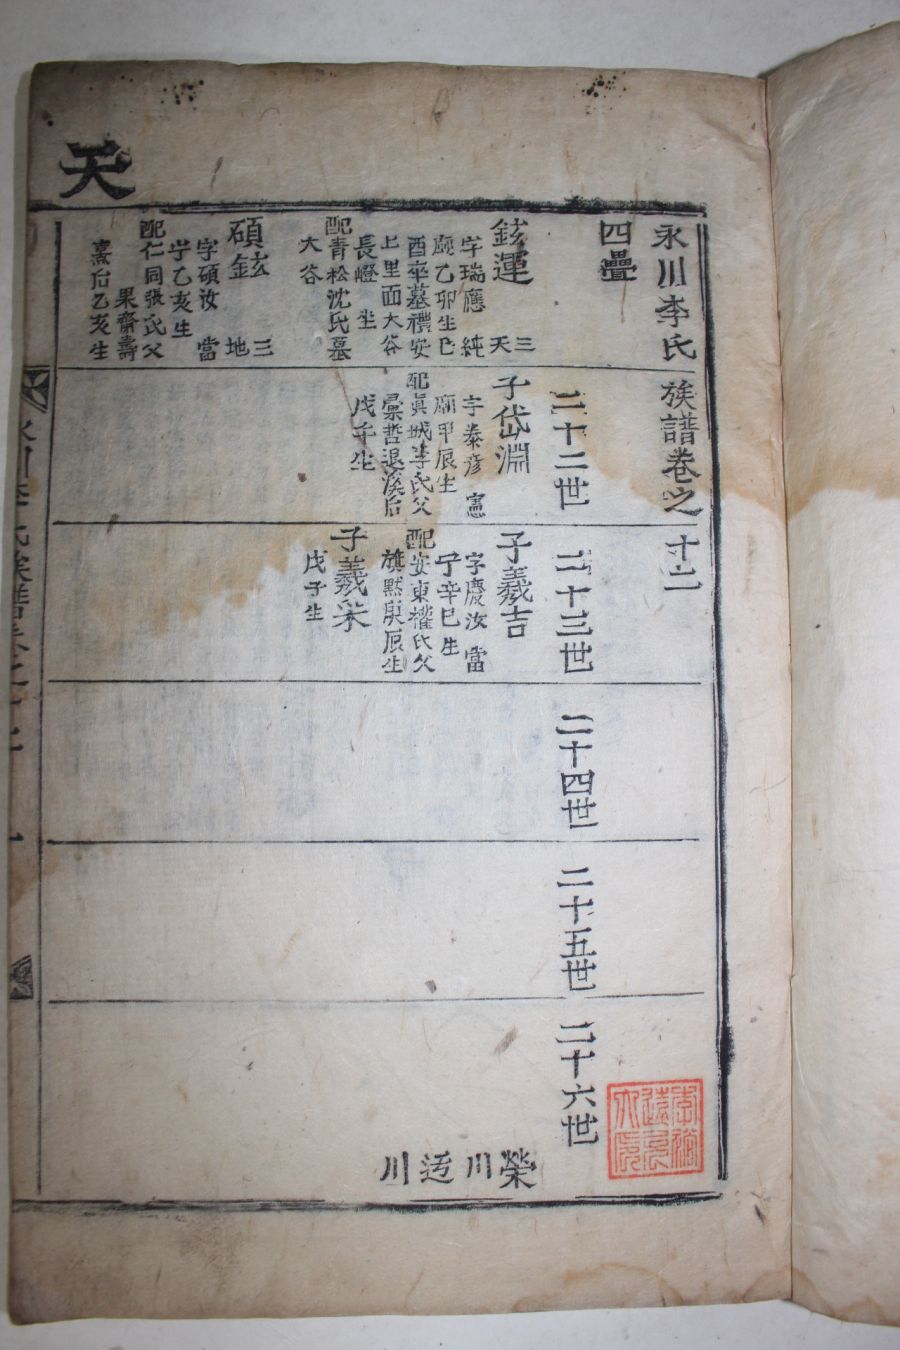 天
永川李氏族譜卷之十二
四疊
二十二世
二十三世
二十四世
二十五世
二十六世
鉉運 三天
字瑞應 純
廟乙卯生己
酉卒墓禮安
上里面大谷
長嶝 坐
配青松沈氏墓
大谷
碩鉉 三地
字碩汝 當
宁乙亥生
配仁同張氏父
果齋壽
熹后乙亥生
子岱淵
字泰彦 憲
廟甲辰生
配眞城李氏父
彙哲退溪后
戊午生
子羲吉
字慶汝 當
宁辛巳生
配安東權氏父
旗默庚辰生
子羲采
戊子生
榮川
川